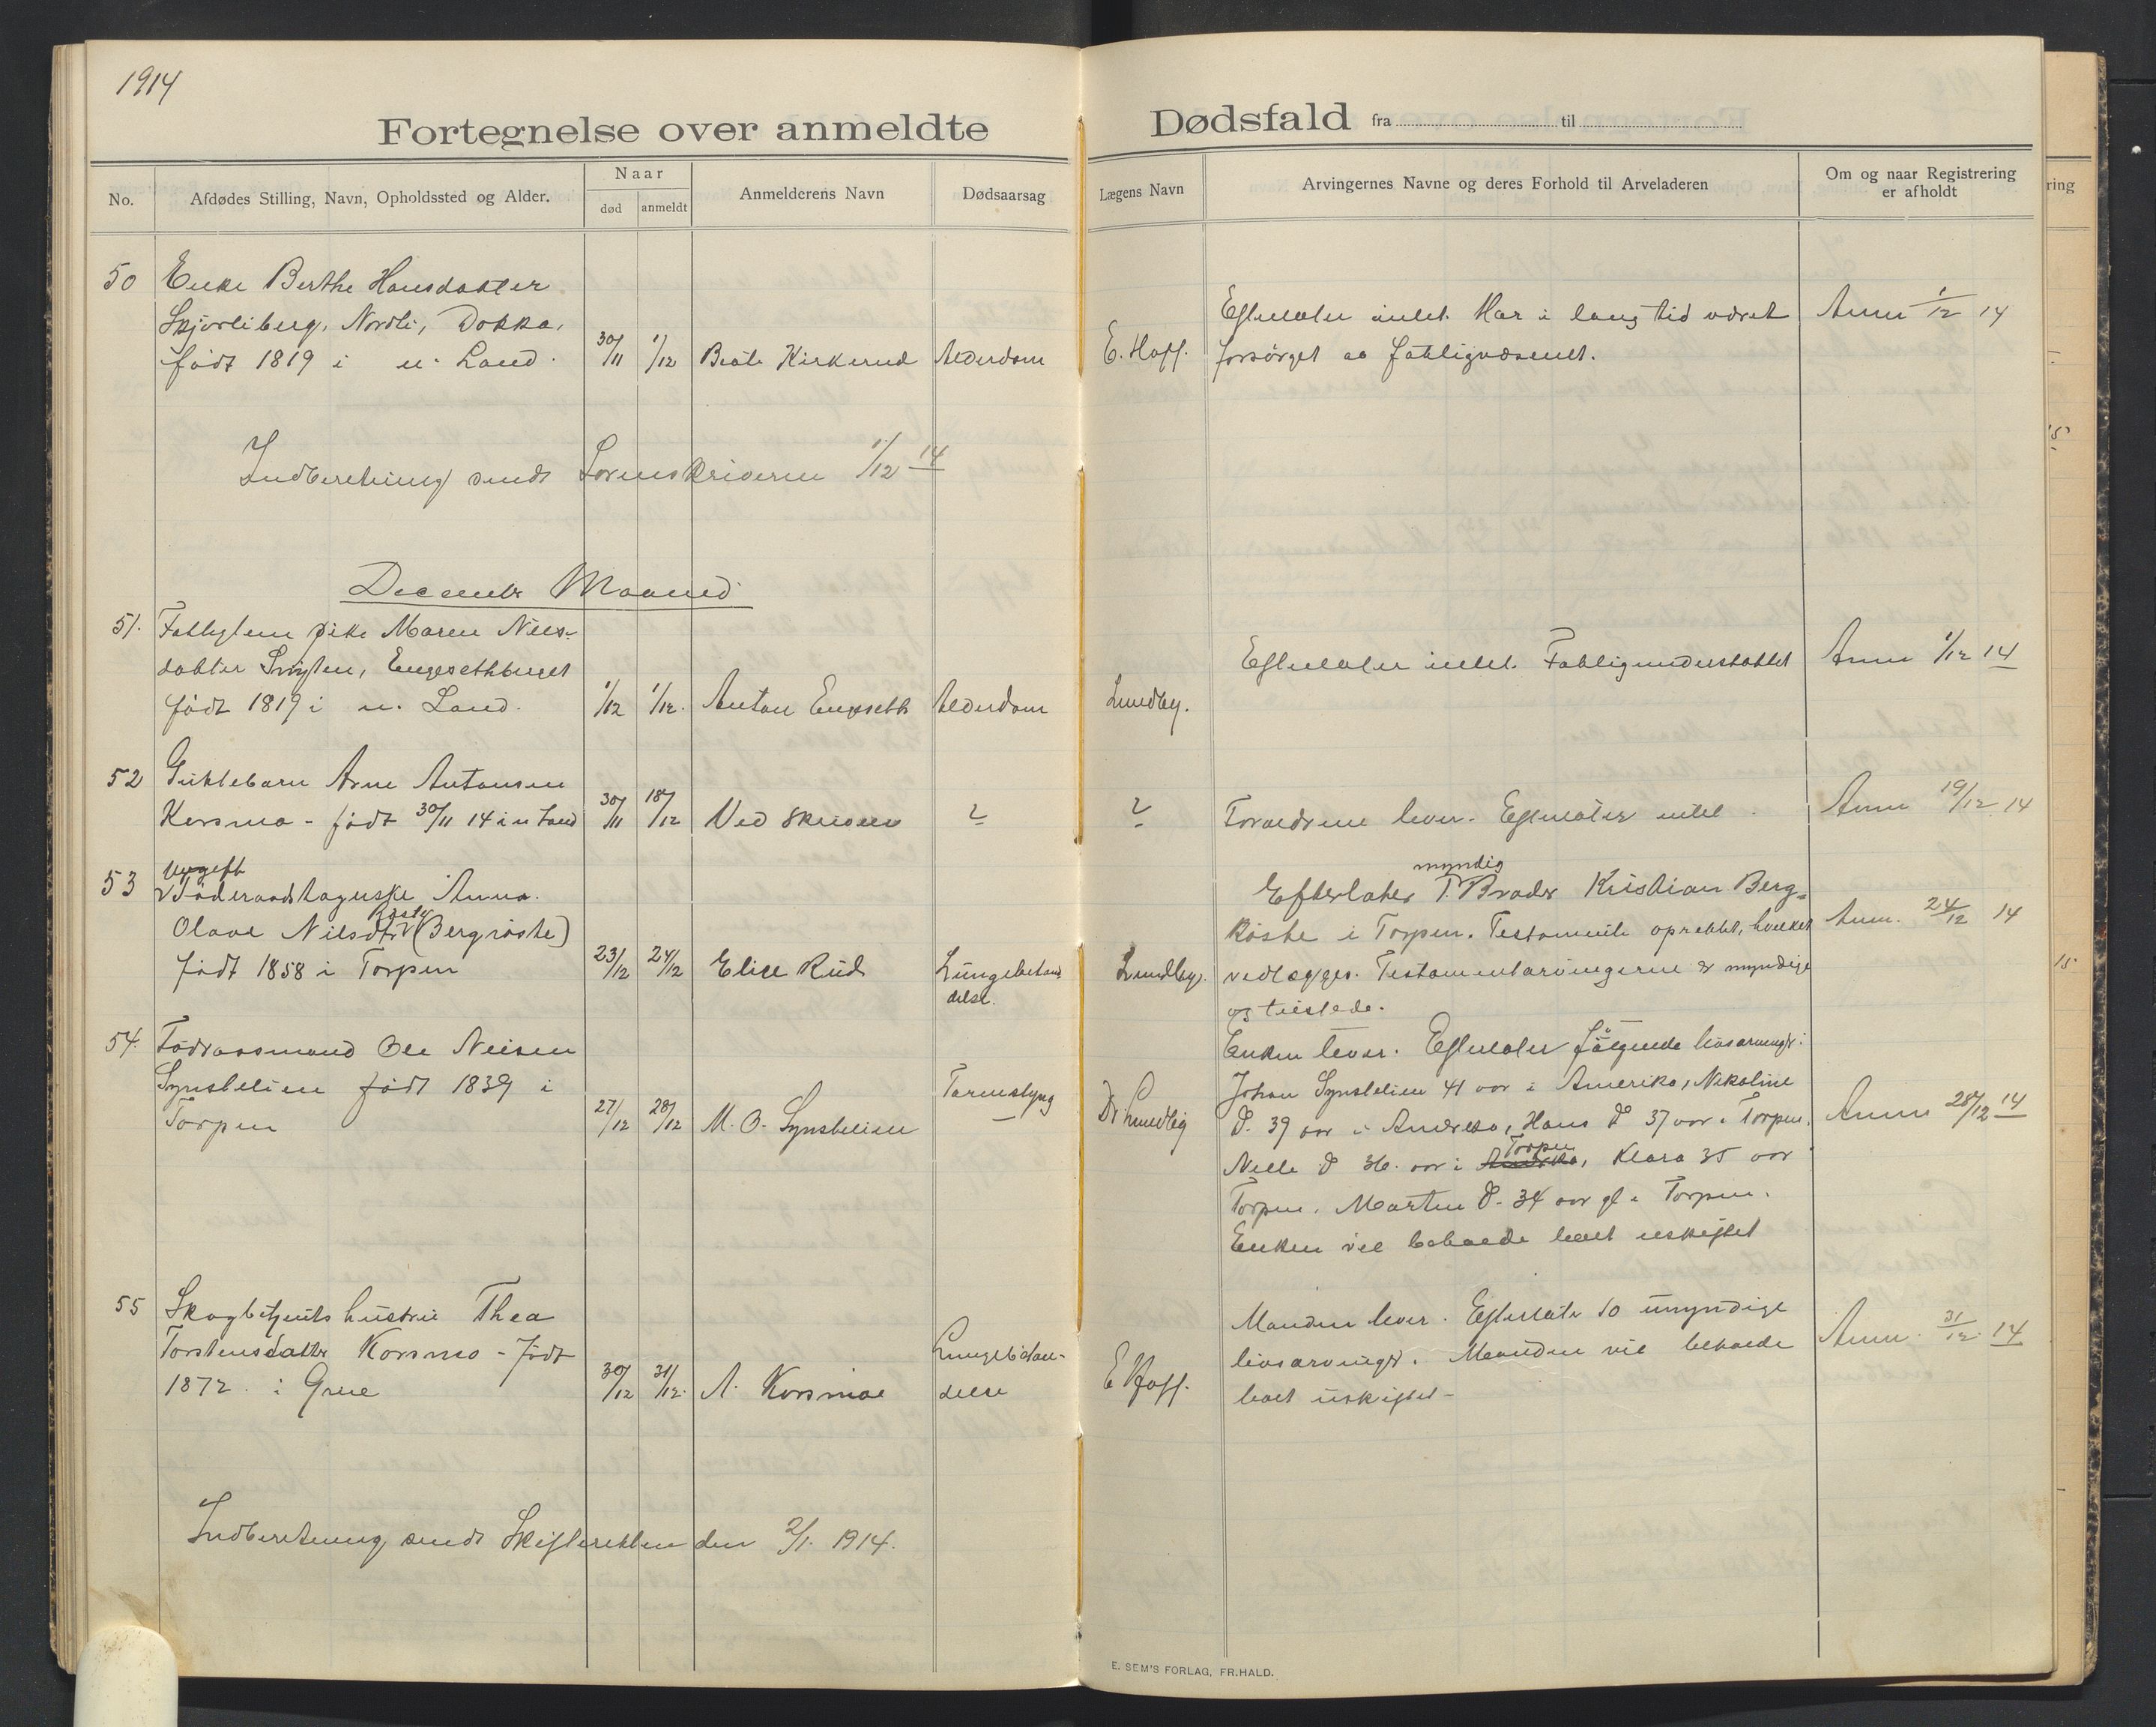 1914
Fortegnelse over anmeldte
Dødsfald fra til
No.
Afdødes Stilling, Navn, Opholdssted og Alder.
Naar
død
anmeldt
Anmelderens Navn
Dødsaarsag
Lægens Navn
Arvingernes Navne og deres Forhold til Arveladeren
Om og naar Registrering
er afholdt
ring
50 Enke Berthe Hansdatter
Skjørliberg, Nordli, Dokka,
født 1819 i n. Land.
30/11 1/12 Beate Kirkerud Alderdom
E. Hoff.
Efterlater intet. Har i lang tid været
forsørget av fattigvæsenet.
Anm 1/12 14
Indberetning sendt Sorenskriveren 1/12 14
December Maaned
51. Fattiglem pike Maren Niels-
datter Engesethbuget
født 1819 i n. Land.
1/12 1/12. Anton Engseth Alderdom
Lundby.
Efterlater intet. Fattigunderstøttet
Anm 1/12 14
52 Spiktebarn Arne Antonsen
Korsmo - født 30/11 14 i n Land
30/11 18/12 Ved skriveri ?
?
Foraldrene lever. Efterlater intet
Anm 19/12 14
53 Ugift
Føderaadstagerske Anna
Olava Nilsdtr (Bergrøste)
født 1858 i Torpen
23/12 24/12 Elise Rud Lungebetæn
delse.
Lundby.
myndig
Efterlater 1. Broder Kristian Berg=
røste i Torpen. Testamente oprettet, hvilket
vedlægges. Testamentarvingerne er myndige
og tilstede.
Anm. 24/12 14
54. Føderaasmand Ole Nilsen
Synstelien født 1839 i
Torpen
27/12 28/12 M. O. Synstelien Tarmslyng
Dr Lundby
Enken lever. Efterlater følgende livsarvinger:
Johan Synstelien 41 aar i Amerika, Nikoline
do. 39 aar i Amerika, Hans do 37 aar i Torpen,
Nille do 36. aar i Amerika, Torpen Klara 35 aar
Torpen. Martin do. 34 aar gl i Torpen.
Enken vil beholde boet uskiftet
Anm 28/12 14
55 Skogbetjents hustru Thea
Torstensdatter Korsmo - født
1872. i Grue
30/12 31/12. A. Korsmoe Lungebetæn-
delse
E Hoff.
Manden lever. Efterlater 10 umyndige
livsarvinger. Manden vil beholde
boet uskiftet -
Anm. 31/12. 14
Indberetning sendt Skifteretten den 2/1. 1914.
E. SEM'S FORLAG, FR.HALD.